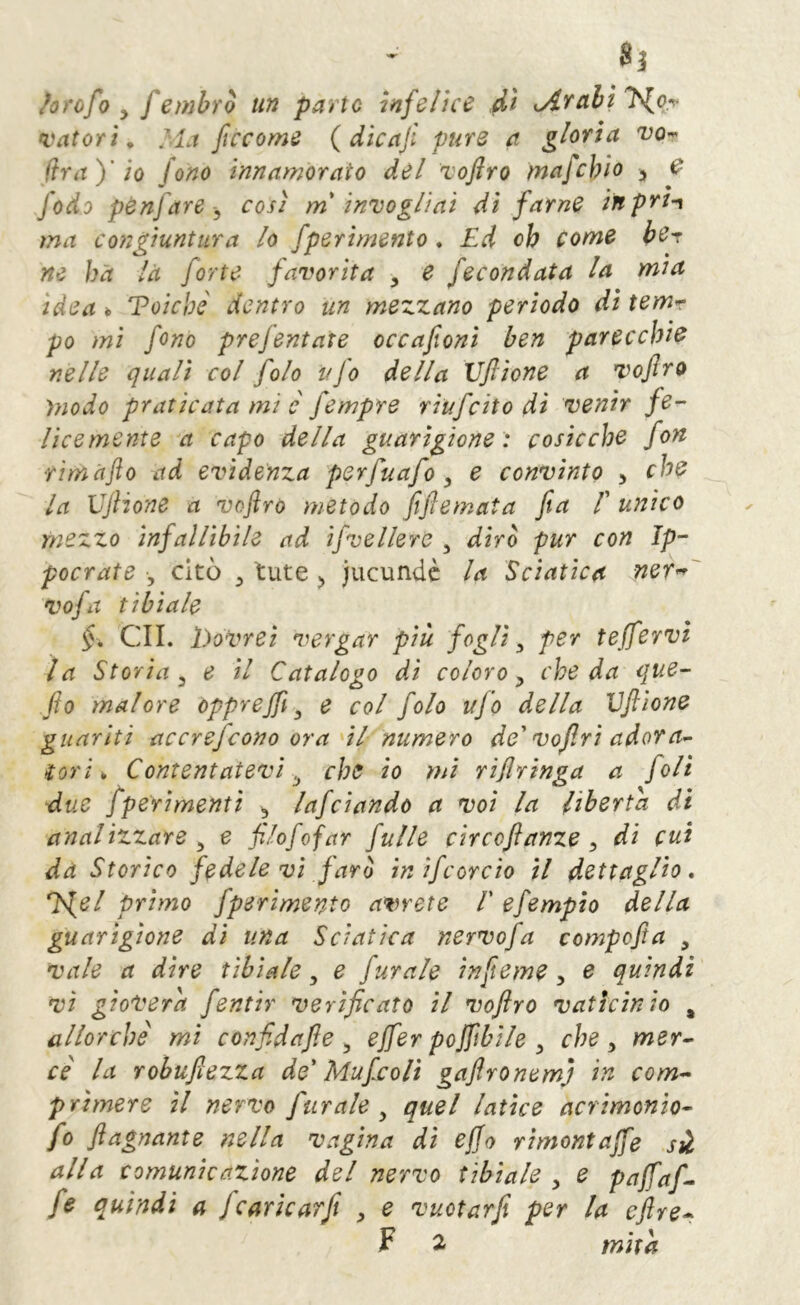 83
loroso, sembrò un parto infelice di Arabi No-
vatori. Ma siccome ( dicasi pure a gloria vo-
stra ) io sono innamorato del vostro maschio, e
sodo pensare, così m' invogliai di farne in pri-
ma congiuntura lo sperimento. Ed oh come be-
ne ha la sorte favorita, e secondata la mia
idea. Poichè dentro un mezzano periodo di tem-
po mi sono presentate occasioni ben parecchie
nelle quali col solo uso della Ustione a vostro
modo praticata mi è sempre riuscito di venir fe-
licemente a capo della guarigione: cosicche son
rimasto ad evidenza persuaso, e convinto, che
la Ustione a vostro metodo sistemata sia l' unico
mezzo infallibile ad isvellere, dirò pur con Ip-
pocrate, citò, tute, jucundè la Sciatica ner-
vosa tibiale
§. CII. Dovrei vergar più fogli, per teffervi
la Storia, e il Catalogo di coloro, che da que-
sto malore oppressi, e col solo uso della Ustione
guariti accrescono ora il numero de' vostri adora-
tori. Contentatevi, che io mi ristringa a soli
due sperimenti, lasciando a voi la libertà di
analizzare, e filosofar sulle circostanze, di cui
da Storico fedele vi farò in iscorcio il dettaglio.
Nel primo sperimento avrete l' esempio della
guarigione di una Sciatica nervosa composta,
vale a dire tibiale, e surale insieme, e quindi
vi gioverà sentir verificato il vostro vaticinio,
allorchè mi confidaste, esser possibile, che, mer-
cè la robustezza de' Muscoli gastronemj in com-
primere il nervo surale, quel latice acrimonio-
so stagnante nella vagina di esso rimontasse sù
alla comunicazione del nervo tibiale, e passas-
se quindi a scaricarsi, e vuotarsi per la estre-
F 2 mità